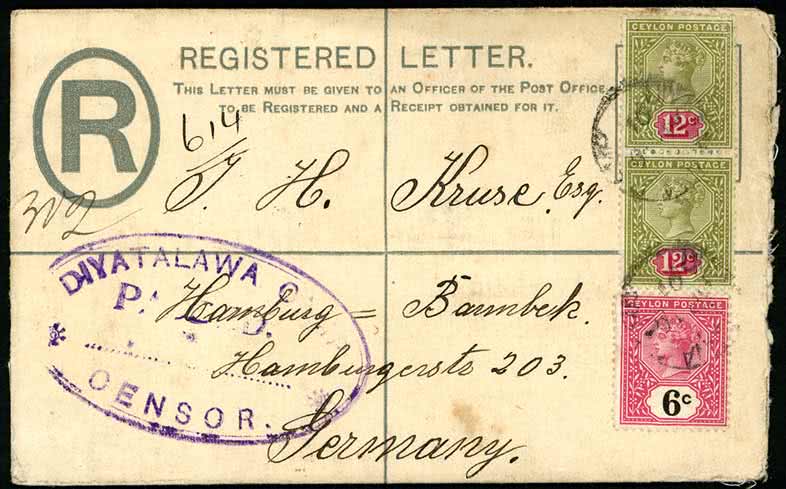 REGISTERED LETTER.
THIS LETTER MUST BE GIVEN TO AN OFFICER OF THE POST OFFICE
TO BE REGISTERED AND A RECEIPT OBTAINED FOR IT.
R
614
302
J. H. Kruse Esq.
Hamburg = Barmbek.
Hamburgerstr 203.
Germany.
DIYATALAWA
CENSOR.
CEYLON POSTAGE
12c
CEYLON POSTAGE
12c
CEYLON POSTAGE
6c